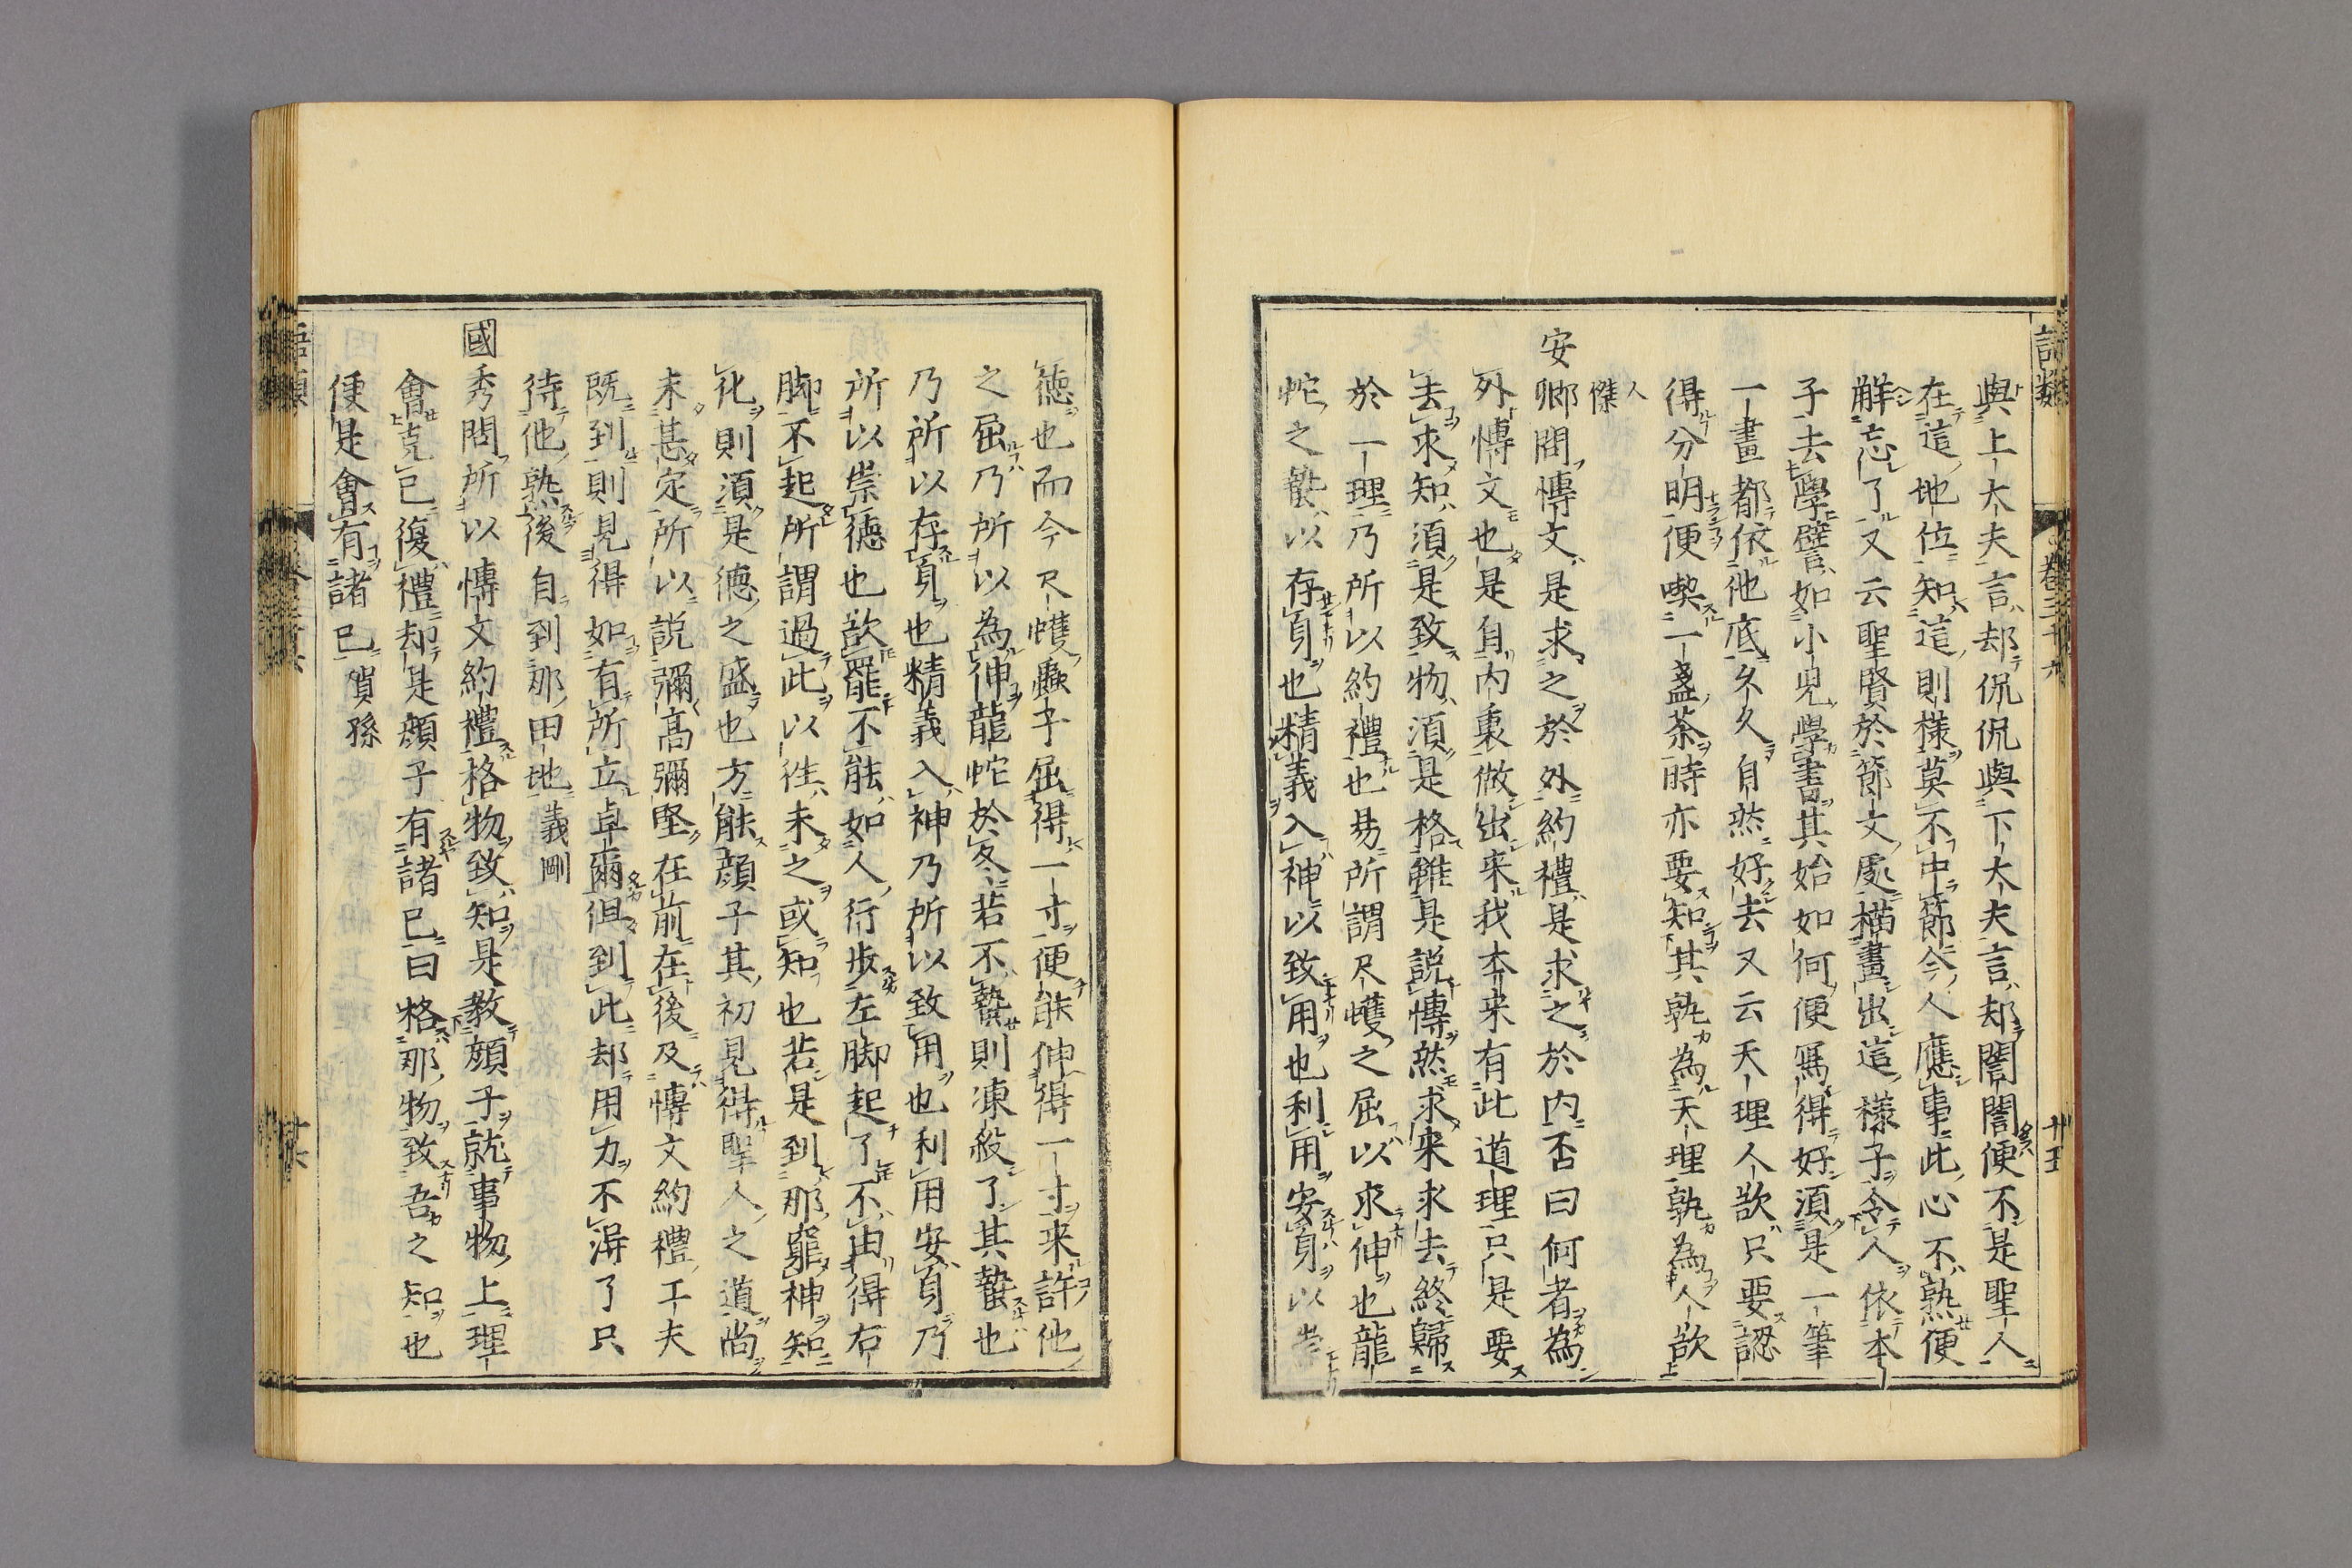 語類 卷三十六 廿五
與上大夫言却侃侃與下大夫言却誾誾便不是聖人
在這地位知這則樣莫不中節今人應事此心不熟便
解忘了又云聖賢於節文處描畫出這樣子令人依本
子去學譬如小兒學書其始如何便寫得好須是一筆
一畫都依他底久久自然好去又云天理人欲只要認
得分明便喫一盞茶時亦要知其孰為天理孰為人欲
人傑
安卿問博文是求之於外約禮是求之於内否曰何者為
外博文也是自内裏做出来我本来有此道理只是要
去求知須是致物須是格雖是説博然求来求去終歸
於一理乃所以約禮也易所謂尺蠖之屈以求伸也龍
蛇之蟄以存身也精義入神以致用也利用安身以崇
德也而今尺蠖蟲子屈得一寸便能伸得一寸来許他
之屈乃所以為伸龍蛇於冬若不蟄則凍殺了其蟄也
乃所以存身也精義入神乃所以致用也利用安身乃
所以崇德也欲罷不能如人行歩左脚起了不由得右
脚不起所謂過此以徃未之或知也若是到那窮神知
化則須是德之盛也方能顔子其初見得聖人之道尚
未甚定所以説彌高彌堅在前在後及博文約禮工夫
既到則見得如有所立卓爾但到此却用力不得了只
待他熟後自到那田地 義剛
國秀問所以博文約禮格物致知是教顔子就事物上理
會克己復禮却是顔子有諸己曰格那物致吾之知也
便是會有諸己 賀孫
語類